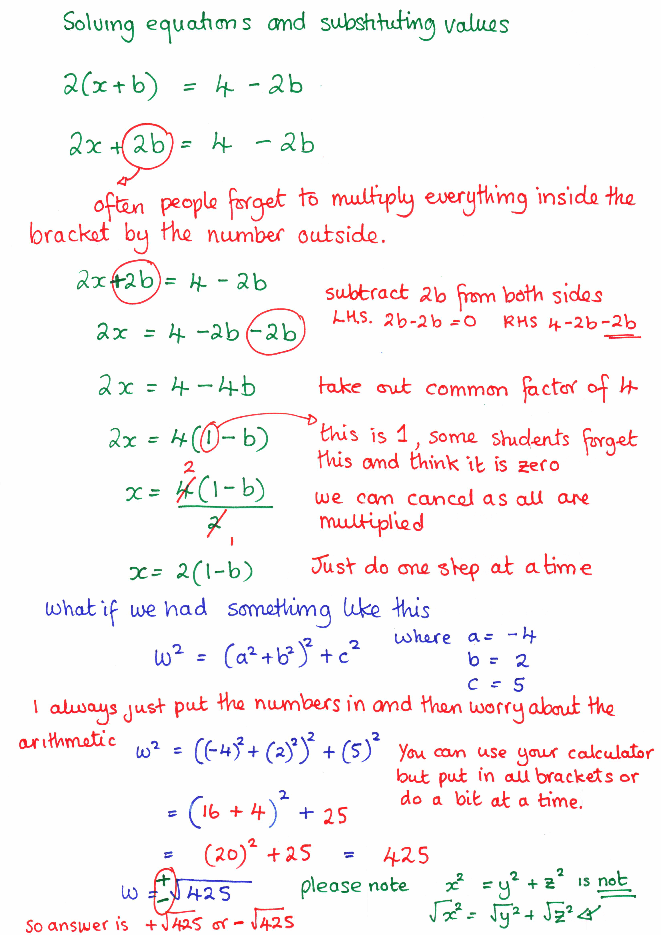 Solving equations and substituting values
2(x + b) = 4 - 2b
2x + 2b = 4 - 2b
often people forget to multiply everything inside the
bracket by the number outside.
2x + 2b = 4 - 2b
subtract 2b from both sides
L.H.S. 2b - 2b = 0 RHS 4 - 2b - 2b
2x = 4 - 2b - 2b
2x = 4 - 4b take out common factor of 4
2x = 4(1 - b) this is 1, some students forget
this and think it is zero
2
x = 4(1 - b) we can cancel as all are
2 multiplied
1
x = 2(1-b) Just do one step at a time
what if we had something like this
w² = (a² + b²)² + c² where a = -4
b = 2
c = 5
I always just put the numbers in and then worry about the
arithmetic w² = ((-4)² + (2)²)² + (5)² You can use your calculator
but put in all brackets or
do a bit at a time.
= (16 + 4)² + 25
= (20)² + 25 = 425
w = ±√425 please note x² = y² + z² is not
√x² = √y² + √z²
So answer is +√425 or -√425